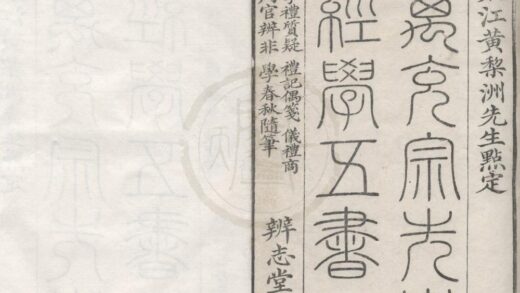 江黃梨洲先生點定
萬充宗先
經學五書
禮質疑 禮記偶箋 儀禮商
官辨非 學春秋隨筆
辨志堂